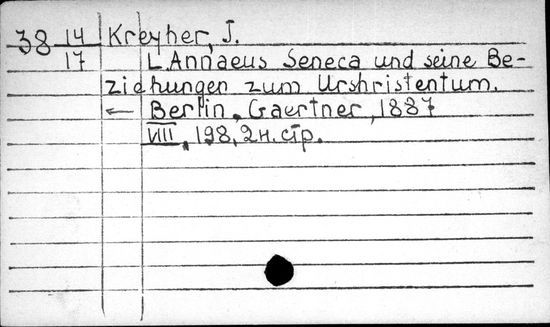 38 14 Kreyher, J.
17 L. Annaeus Seneca und seine Be-
ziehungen zum Urshristentum.
← Berlin, Gaertner, 1887
VIII, 198, 2 н. стр.